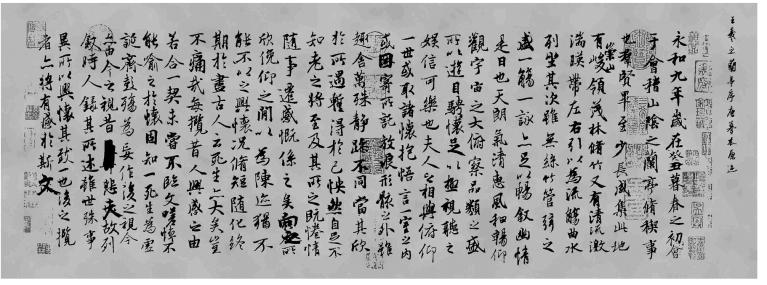 王羲之蘭亭序唐摹本原迹
永和九年歲在癸丑暮春之初會
于會稽山陰之蘭亭脩稧事
也羣賢畢至少長咸集此地
有崇山峻領茂林脩竹又有清流激
湍暎帶左右引以為流觴曲水
列坐其次雖無絲竹管弦之
盛一觴一詠亦足以暢叙幽情
是日也天朗氣清惠風和暢仰
觀宇宙之大俯察品類之盛
所以遊目騁懷足以極視聽之
娛信可樂也夫人之相與俯仰
一世或取諸懷抱悟言一室之內
或因寄所託放浪形骸之外雖
趣舍萬殊靜躁不同當其欣
於所遇蹔得於己怏然自足不
知老之將至及其所之既惓情
隨事遷感慨係之矣向之所
欣俛仰之閒以為陳迹猶不
能不以之興懷況脩短隨化終
期於盡古人云死生亦大矣豈
不痛哉每攬昔人興感之由
若合一契未嘗不臨文嗟悼不
能喻之於懷固知一死生為虛
誕齊彭殤為妄作後之視今
亦由今之視昔悲夫故列
叙時人錄其所述雖世殊事
異所以興懷其致一也後之攬
者亦將有感於斯文